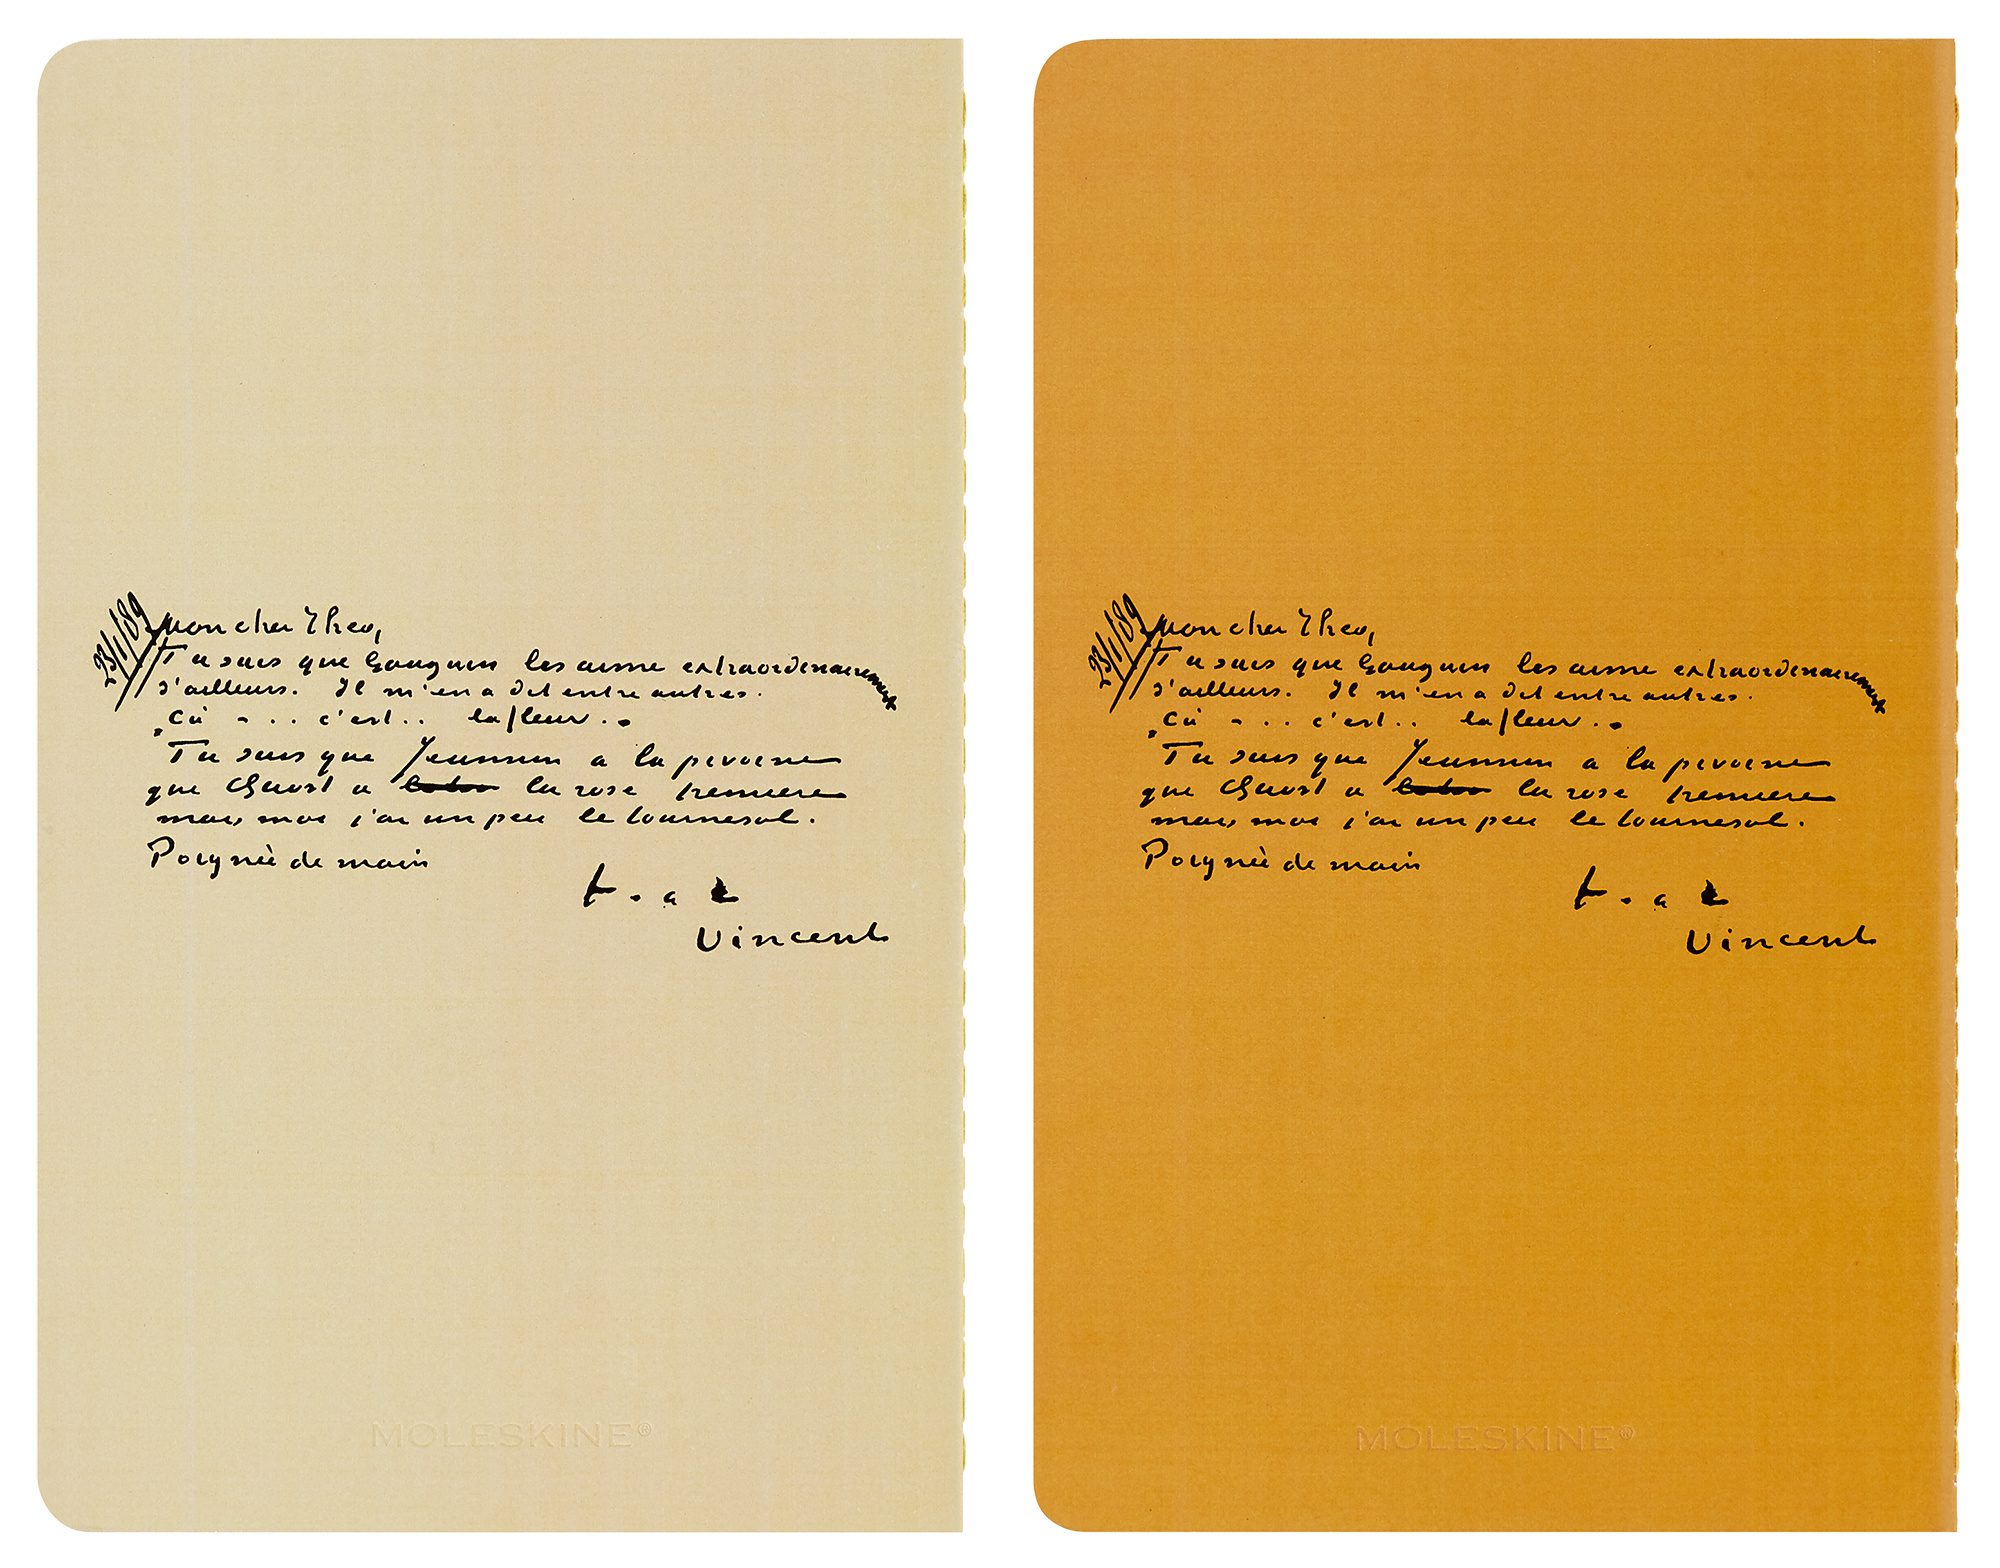 23/1/89
Mon cher Theo,
Tu sais que Gauguin les aime extraordinairement
d'ailleurs. Il m'en a dit entre autres.
„ça - . . c'est . . la fleur . "
Tu sais que Jeannin a la pivoine
que Quost a la rose tremière
mais moi j'ai un peu le tournesol.
Poignée de main
t. à t
Vincent
MOLESKINE®
23/1/89
Mon cher Theo,
Tu sais que Gauguin les aime extraordinairement
d'ailleurs. Il m'en a dit entre autres.
„ça - . . c'est . . la fleur . "
Tu sais que Jeannin a la pivoine
que Quost a la rose tremière
mais moi j'ai un peu le tournesol.
Poignée de main
t. à t
Vincent
MOLESKINE®